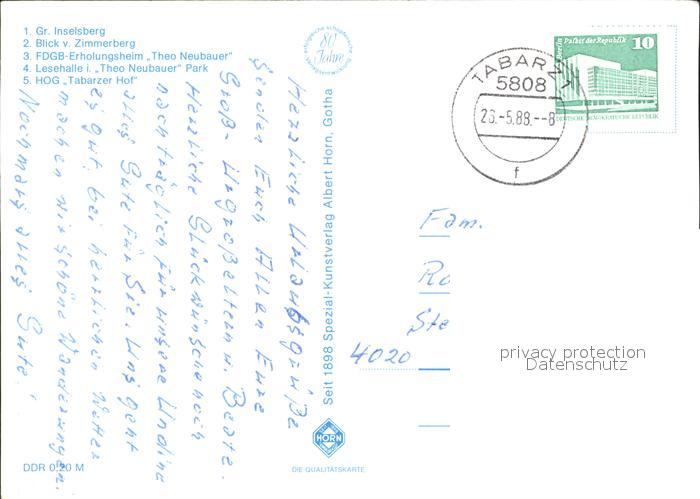 1. Gr. Inselsberg
2. Blick v. Zimmerberg
3. FDGB-Erholungsheim „Theo Neubauer"
4. Lesehalle i. „Theo Neubauer" Park
5. HOG „Tabarzer Hof"
80 Jahre
TABARZ
5808
-5.88.--8
f
Berlin Palast der Republik
10
DEUTSCHE DEMOKRATISCHE REPUBLIK
Herzliche Urlaubsgrüße
senden Euch Allen Eure
Groß- Urgroßeltern u. Beate.
Herzliche Glückwünsche noch
nachträglich für unsere Undine
alles Gute für Sie. Uns geht
es gut, bei herrlichen Wetter
machen wir schöne Wanderungen.
Nochmals alles Gute.
Seit 1898 Spezial-Kunstverlag Albert Horn, Gotha
Fam.
Ro
Ste
4020
privacy protection
Datenschutz
HORN
DIE QUALITÄTSKARTE
DDR 0,20 M